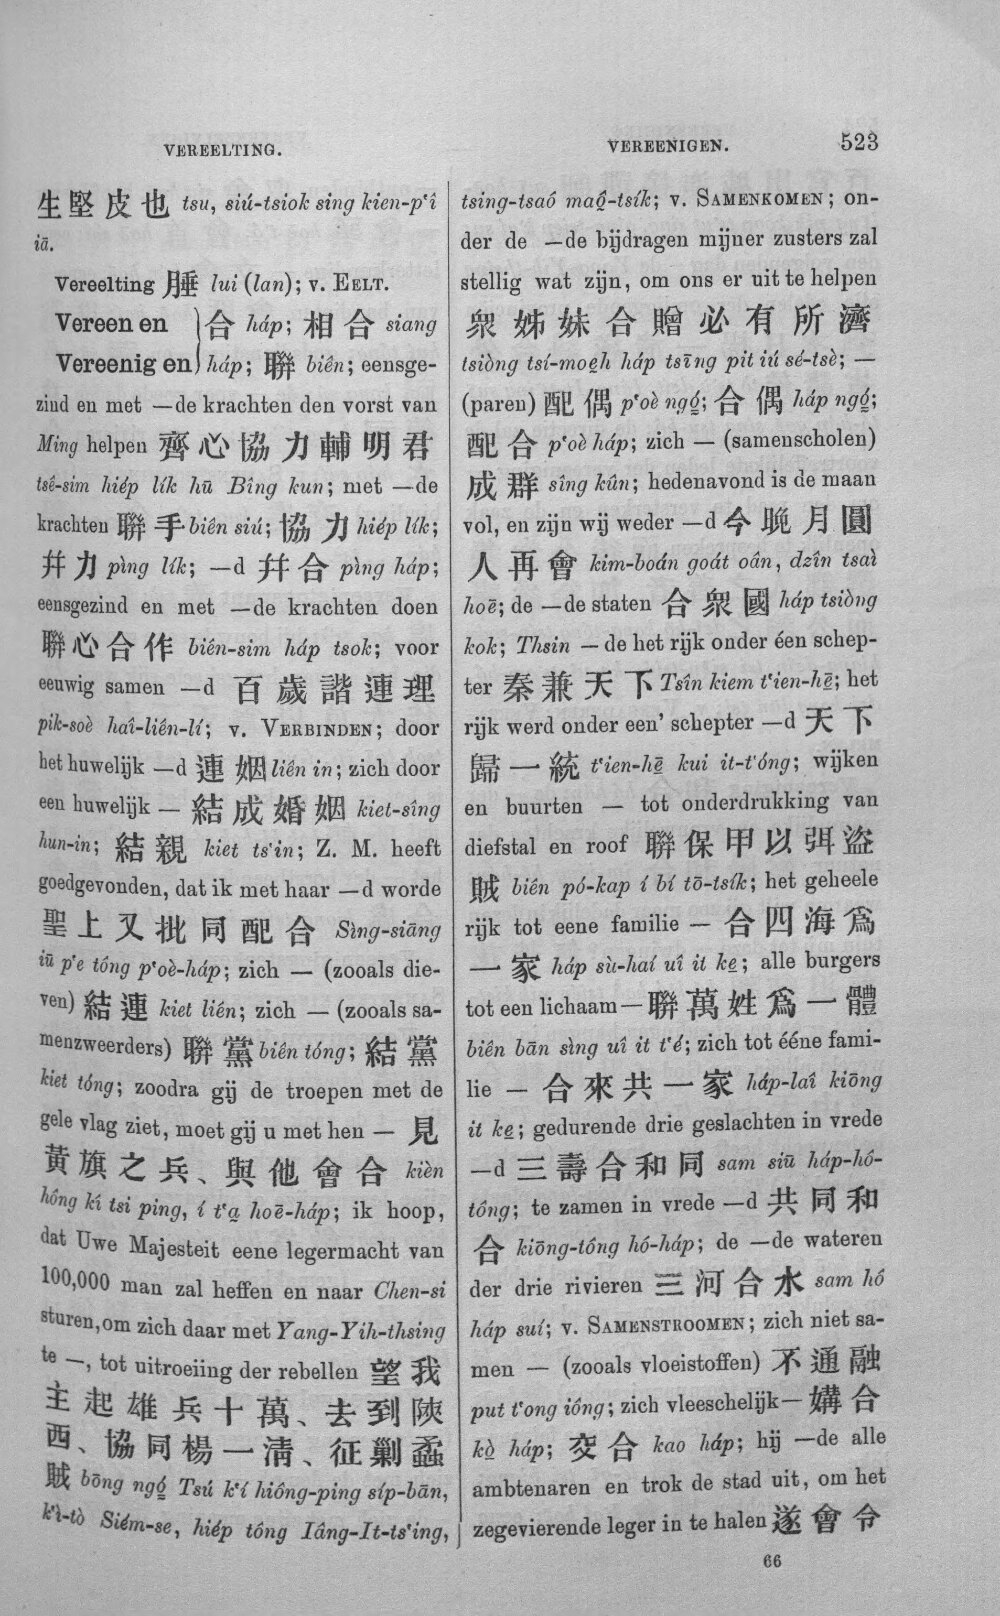 VEREELTING.
VEREENIGEN.
523
生堅皮也 tsu, siú-tsiok sing kien-p‘î
iā.
Vereelting 腄 lui (lan); v. EELT.
Vereen en } 合 háp; 相合 siang
Vereenig en } háp; 聯 biên; eensge-
zind en met —de krachten den vorst van
Ming helpen 齊心協力輔明君
tsê-sim hiép lík hū Bîng kun; met —de
krachten 聯手 biên siú; 協力 hiép lík;
幷力 pìng lík; —d 幷合 pìng háp;
eensgezind en met —de krachten doen
聯心合作 biên-sim háp tsok; voor
eeuwig samen —d 百歲諧連理
pik-soè haî-liên-lí; v. VERBINDEN; door
het huwelijk —d 連姻 liên in; zich door
een huwelijk — 結成婚姻 kiet-sîng
hun-in; 結親 kiet ts‘in; Z. M. heeft
goedgevonden, dat ik met haar —d worde
聖上又批同配合 Sìng-siāng
iū p‘e tông p‘oè-háp; zich — (zooals die-
ven) 結連 kiet liên; zich — (zooals sa-
menzweerders) 聯黨 biên tóng; 結黨
kiet tóng; zoodra gij de troepen met de
gele vlag ziet, moet gij u met hen — 見
黃旗之兵、與他會合 kièn
hông kî tsi ping, í t‘a̱ hoē-háp; ik hoop,
dat Uwe Majesteit eene legermacht van
100,000 man zal heffen en naar Chen-si
sturen, om zich daar met Yang-Yih-thsing
te —, tot uitroeiing der rebellen 望我
主起雄兵十萬、去到陝
西、協同楊一清、征剿蟊
賊 bōng ngó̱ Tsú k‘í hiông-ping síp-bān,
k‘ì-tò Siém-se, hiép tông Iâng-It-ts‘ing,
tsing-tsaó maô̱-tsík; v. SAMENKOMEN; on-
der de —de bijdragen mijner zusters zal
stellig wat zijn, om ons er uit te helpen
衆姊妹合贈必有所濟
tsiòng tsí-moe̱h háp tsīng pit iú sé-tsè; —
(paren) 配偶 p‘oè ngó̱; 合偶 háp ngó̱;
配合 p‘oè háp; zich — (samenscholen)
成群 sîng kûn; hedenavond is de maan
vol, en zijn wij weder —d 今晚月圓
人再會 kim-boán goát oân, dzîn tsaì
hoē; de —de staten 合衆國 háp tsiòng
kok; Thsin — de het rijk onder éen schep-
ter 秦兼天下 Tsîn kiem t‘ien-hē̱; het
rijk werd onder een’ schepter —d 天下
歸一統 t‘ien-hē̱ kui it-t‘óng; wijken
en buurten — tot onderdrukking van
diefstal en roof 聯保甲以弭盜
賊 biên pó-kap í bí tō-tsík; het geheele
rijk tot eene familie — 合四海爲
一家 háp sù-haí uî it ke̱; alle burgers
tot een lichaam— 聯萬姓爲一體
biên bān sìng uî it t‘é; zich tot ééne fami-
lie — 合來共一家 háp-laî kiōng
it ke̱; gedurende drie geslachten in vrede
—d 三壽合和同 sam siū háp-hô-
tông; te zamen in vrede —d 共同和
合 kiōng-tông hô-háp; de —de wateren
der drie rivieren 三河合水 sam hô
háp suí; v. SAMENSTROOMEN; zich niet sa-
men — (zooals vloeistoffen) 不通融
put t‘ong iông; zich vleeschelijk— 媾合
kò̱ háp; 交合 kao háp; hij —de alle
ambtenaren en trok de stad uit, om het
zegevierende leger in te halen 遂會令
66